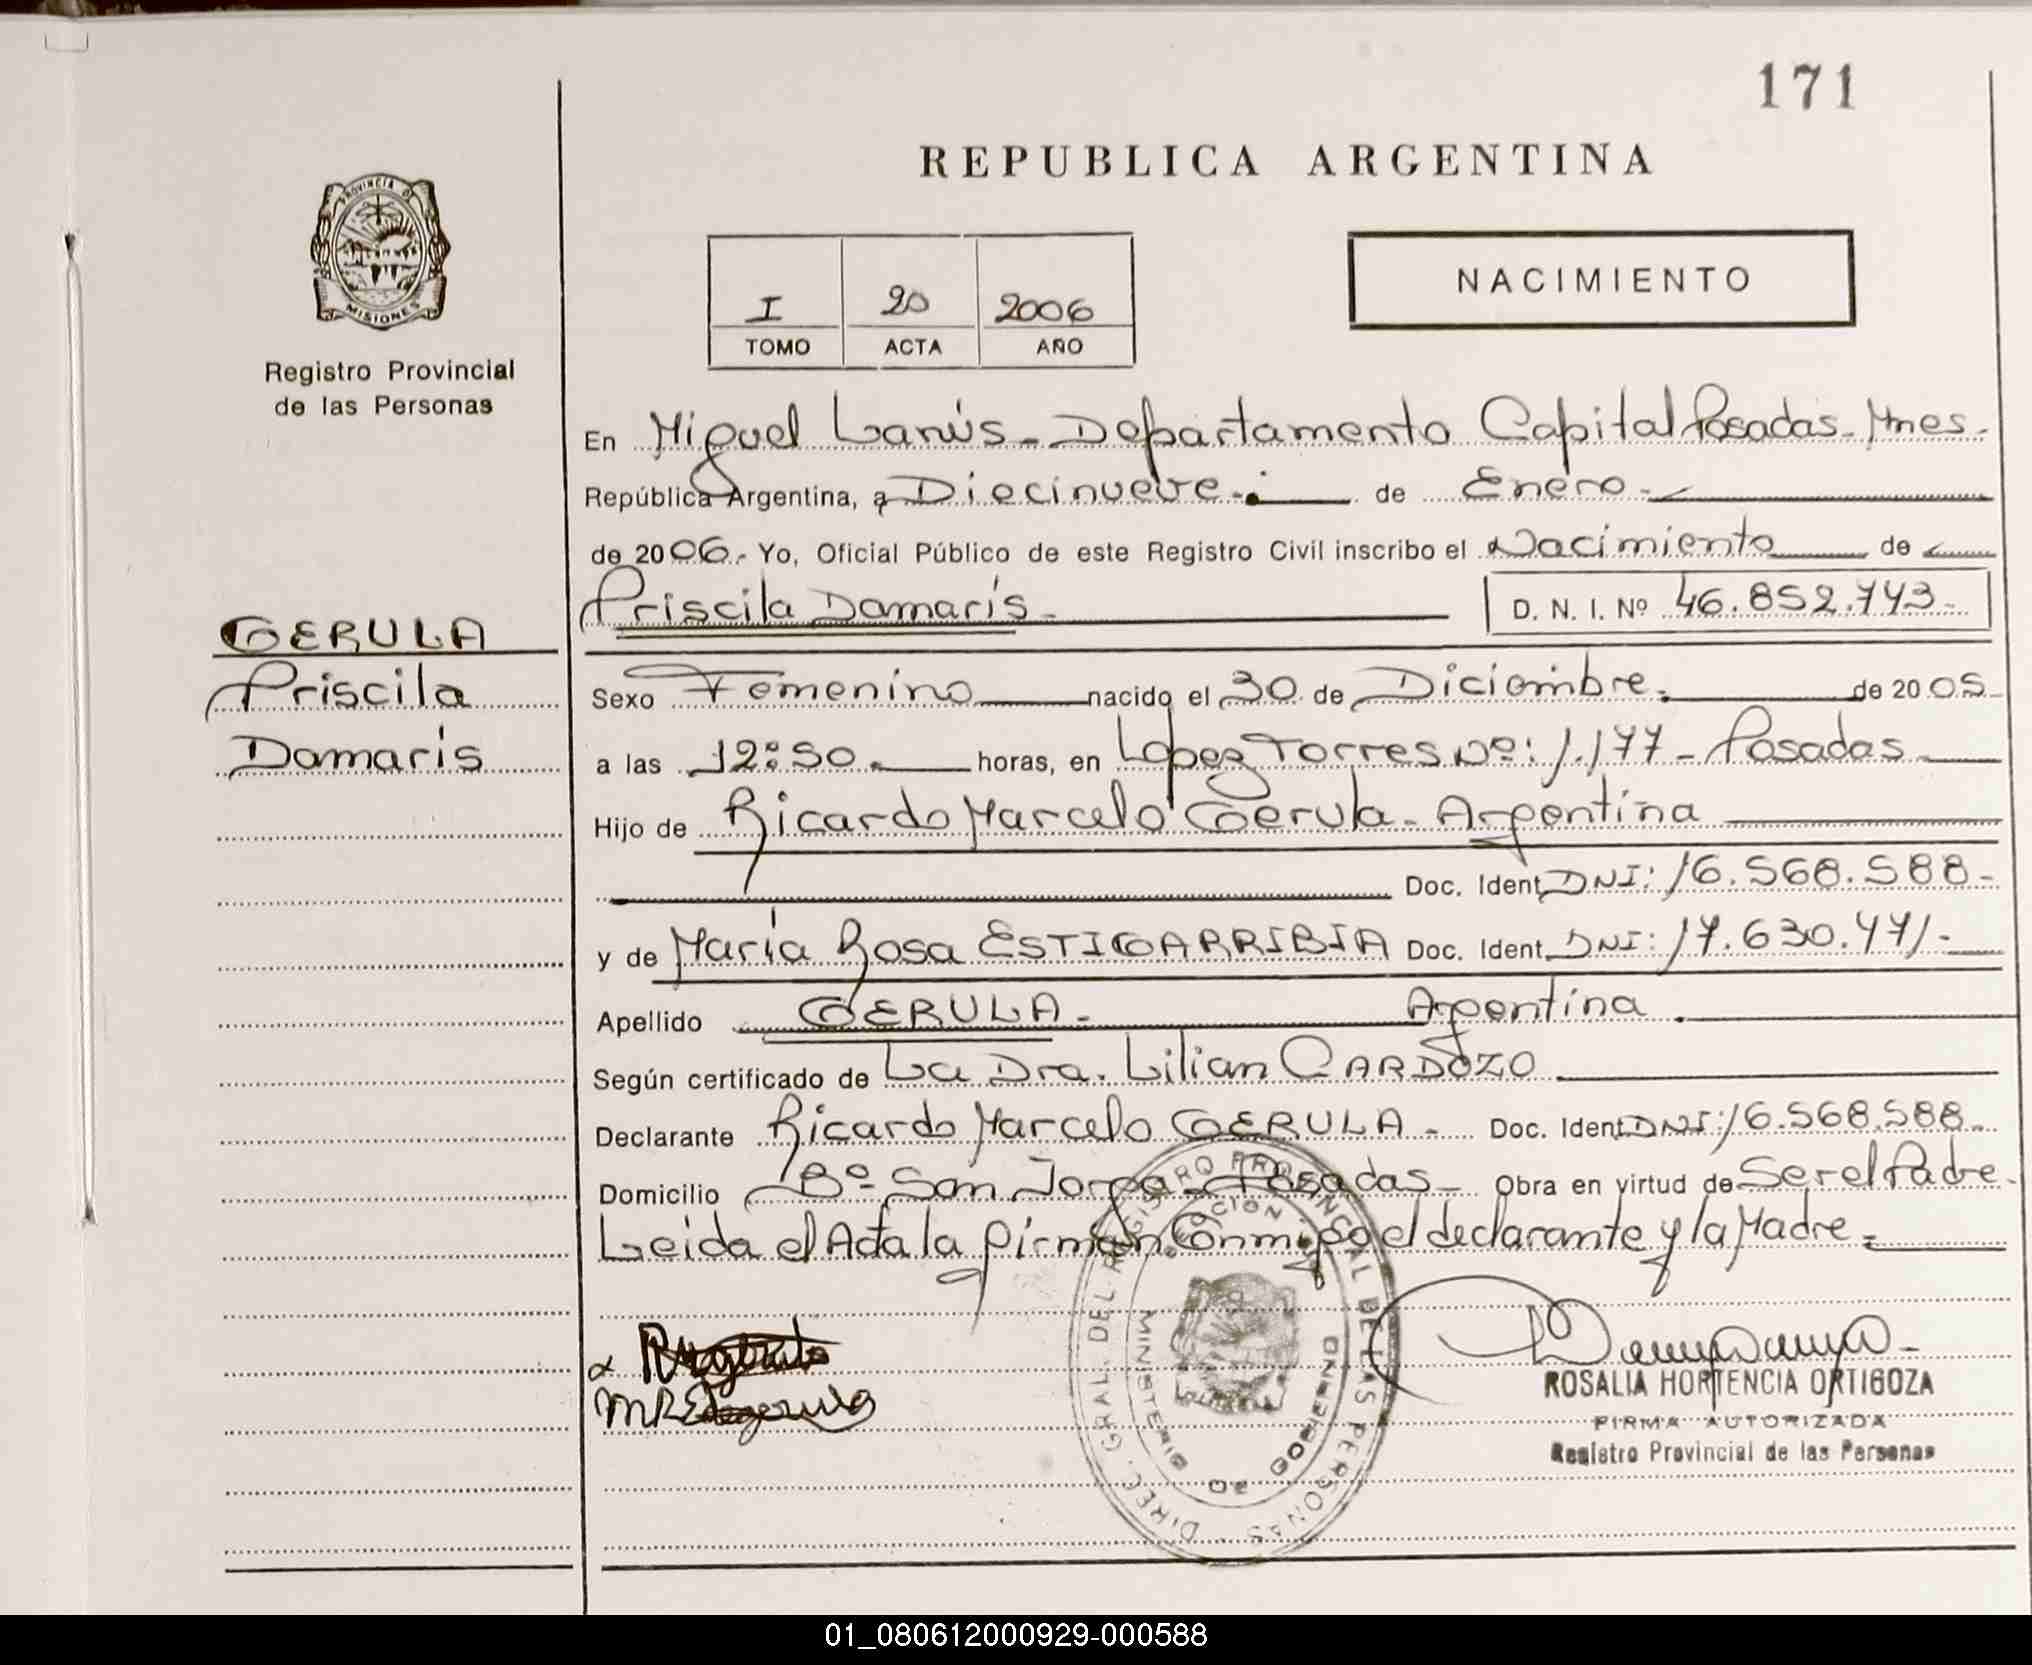 171
REPUBLICA ARGENTINA
PROVINCIA DE
MISIONES
Registro Provincial
de las Personas
I 20 2006
TOMO ACTA AÑO
NACIMIENTO
En Miguel Lanús - Departamento Capital Posadas - Mnes -
República Argentina, a Diecinueve.- de Enero -
de 2006.- Yo, Oficial Público de este Registro Civil inscribo el Nacimiento de
Priscila Damarís - D. N. I. Nº 46.852.743-
GERULA
Priscila
Damarís
Sexo Femenino nacido el 30 de Diciembre. de 2005
a las 12:50. horas, en López Torres Nº: 1.177 - Posadas
Hijo de Ricardo Marcelo Gerula - Argentina
Doc. Ident. DNI: 16.568.588-
y de María Rosa ESTIGARRIBIA Doc. Ident. DNI: 17.630.471-
Apellido GERULA - Argentina.
Según certificado de La Dra. Lilian CARDOZO
Declarante Ricardo Marcelo GERULA - Doc. Ident. DNI: 16.568.588-
Domicilio Bº San Jorge - Posadas - Obra en virtud de Ser el Padre -
Leida el Acta la firman conmigo el declarante y la Madre -
DIREC. GRAL. DEL REGISTRO PROVINCIAL DE LAS PERSONAS
MINISTERIO DE GOBIERNO
ROSALIA HORTENCIA ORTIGOZA
FIRMA AUTORIZADA
Registro Provincial de las Personas
01_080612000929-000588